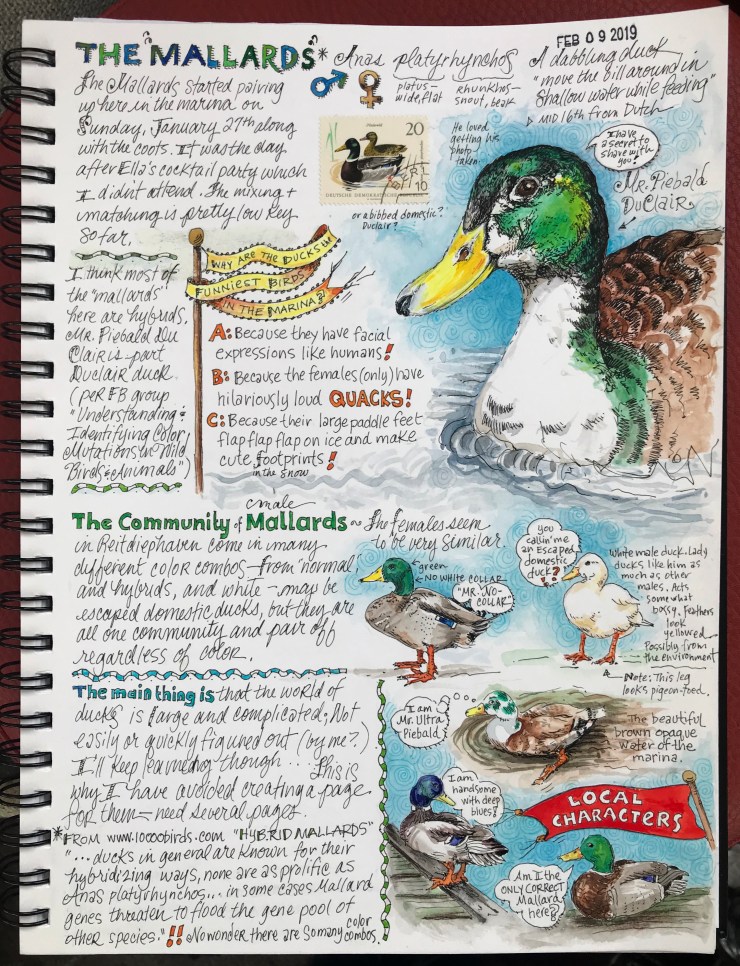 FEB 09 2019
THE "MALLARDS"* Anas platyrhynchos
platus - wide, flat
rhunkhos - snout, beak
A dabbling duck
"move the bill around in
shallow water while feeding"
MID 16th from Dutch
The Mallards started pairing
up here in the marina on
Sunday, January 27th along
with the coots. It was the day
after Ella's cocktail party which
I didn't attend. The mixing +
matching is pretty low key
so far.
20
10
DEUTSCHE DEMOKRATISCHE
He loved
getting his
photo
taken.
I have
a secret to
share with
you!
Mr. Piebald
DuClair
or a bibbed domestic?
Duclair?
I think most of
the "mallards"
here are hybrids.
Mr. Piebald Du
Clair is part
Duclair duck.
(per FB group
"Understanding &
Identifying Color
Mutations in Wild
Birds & Animals")
WHY ARE THE DUCKS the
FUNNIEST BIRDS
IN THE MARINA?!
A: Because they have facial
expressions like humans!
B: Because the females (only) have
hilariously loud QUACKS!
C: Because their large paddle feet
flap flap flap on ice and make
cute footprints!
in the snow
male
The Community of Mallards ~ The females seem
to be very similar.
in Reitdiephaven come in many
different color combos - from 'normal',
and hybrids, and white - may be
escaped domestic ducks, but they are
all one community and pair off
regardless of color.
green
NO WHITE COLLAR
"MR. NO-
COLLAR"
you
callin' me
an Escaped
domestic
duck?
White male duck. Lady
ducks like him as
much as other
males. Acts
somewhat
bossy. Feathers
look
yellowed
Possibly from
the environment
Note: This leg
looks pigeon-toed.
The main thing is that the world of
ducks is large and complicated; Not
easily or quickly figured out (by me?.)
I'll keep learning though... This is
why I have avoided creating a page
for them - need several pages.
*FROM www.10000birds.com "HYBRID MALLARDS"
"...ducks in general are known for their
hybridizing ways, none are as prolific as
Anas platyrhynchos... in some cases Mallard
genes threaten to flood the gene pool of
other species."!! No wonder there are so many color combos.
I am
Mr. Ultra
Piebald
The beautiful
brown opaque
water of the
marina.
I am
handsome
with deep
blues!
LOCAL
CHARACTERS
Am I the
ONLY CORRECT
Mallard
here?